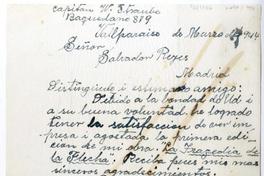 Capitán W. Straube
Baquedano 879
Valparaíso de Marzo 1944
Señor
Salvador Reyes
Madrid
Distinguido i estimado amigo:
Debido a la bondad de Ud i
a su buena voluntad he logrado
tener la satisfaccion de ver im-
presa i agotada la primera edi-
cion de mi obra: La Tragedia de
la Flecha. Reciba pues mis mas
sinceros agradecimientos.